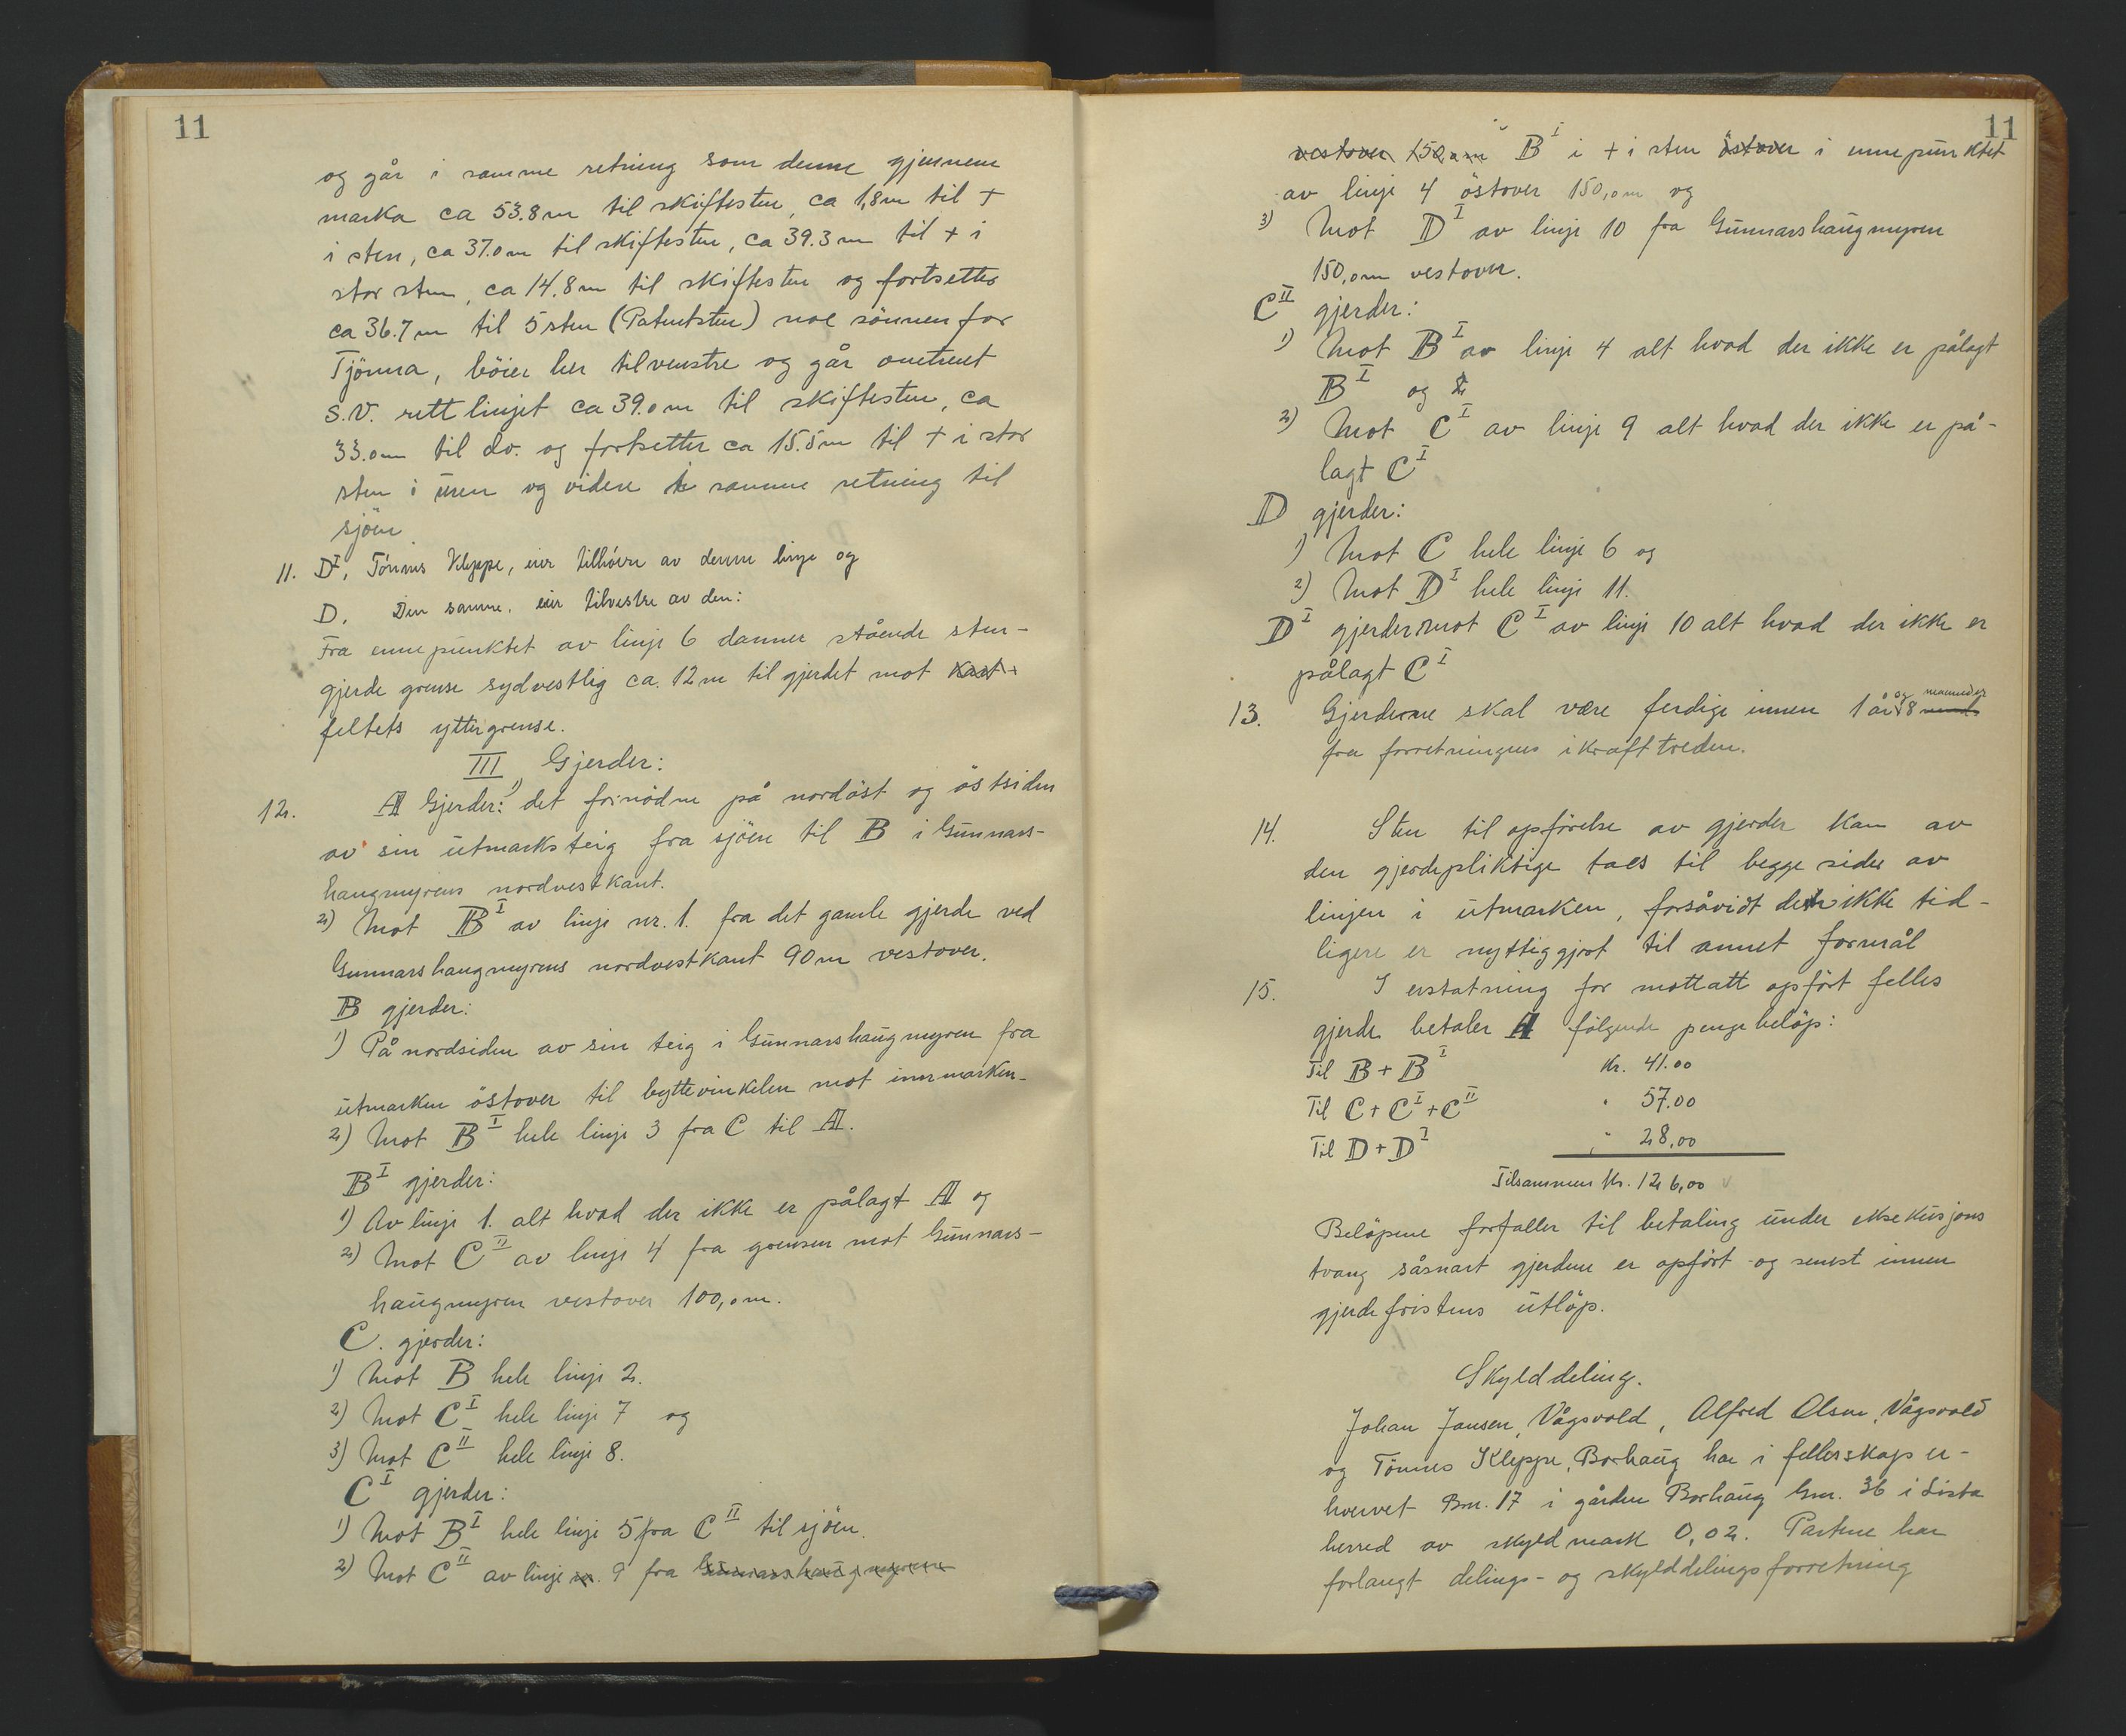 11
og går i samme retning som denne gjennem
marka ca 53.8m til skiftesten, ca 1,8m til +
i sten, ca 37.0m til skiftesten, ca 39.3m til + i
stor sten, ca 14.8m til skiftesten og fortsetter
ca 36.7m til 5 sten (Patentsten) noe sönnenfor
Tjönna, böier her tilvenstre og går omtrent
S.V. rettlinjet ca 39.0m til skiftesten, ca
33.0m til do. og fortsetter ca 15.5m til + i stor
sten i uren og videre i samme retning til
sjöen
11. D I, Tönnes Kleppe, eier tilhöire av denne linje og
D. Den samme, eier tilvestre av den:
Fra ennepunktet av linje 6 danner stående sten-
gjerde grense sydvestlig ca. 12m til gjerdet mot kart-
feltets yttergrense.
III Gjerder:
12. A Gjerder: 1) det fornödne på nordöst og östsiden
av sin utmarksteig fra sjöen til B i Gunnars-
haugmyrens nordvestkant.
2) Mot B I av linje nr. 1. fra det gamle gjerde ved
Gunnarshaugmyrens nordvestkant 90m vestover.
B gjerder:
1) På nordsiden av sin teig i Gunnarshaugmyren fra
utmarken östover til byttevinkelen mot innmarken-
2) Mot B I hele linje 3 fra C til A.
B I gjerder:
1) Av linje 1. alt hvad der ikke er pålagt A og
2) Mot C II av linje 4 fra grensen mot Gunnars-
haugmyren vestover 100,0m.
C. gjerder:
1) Mot B hele linje 2.
2) Mot C I hele linje 7 og
3) Mot C II hele linje 8.
C I gjerder:
1) Mot B I hele linje 5 fra C II til sjöen.
2) Mot C II av linje nr. 9 fra Gunnarshaugmyren
11
vestover 150,0m B I i + i sten östover i ennepunktet
av linje 4 östover 150,0m og
3) Mot D I av linje 10 fra Gunnarshaugmyren
150,0m vestover.
C II gjerder:
1) Mot B I av linje 4 alt hvad der ikke er pålagt
B I og
2) Mot C I av linje 9 alt hvad der ikke er på-
lagt C I
D gjerder:
1) Mot C hele linje 6 og
2) Mot D I hele linje 11.
D I gjerder mot C I av linje 10 alt hvad der ikke er
pålagt C I
13. Gjerderne skal være ferdige innen 1 år og 8 mnd. maaneder
fra forretningens ikrafttreden.
14. Sten til opförelse av gjerder kan av
den gjerdepliktige taes til begge sider av
linjen i utmarken, forsåvidt den ikke tid-
ligere er nyttiggjort til annet formål
15. I erstatning for mottatt opfört felles
gjerde betaler A fölgende pengebelöp:
Til B + B I Kr. 41.00
Til C + C I + C II " 57.00
Til D + D I " 28,00
Tilsammen Kr. 126,00
Belöpene forfaller til betaling under eksekusjons
tvang såsnart gjerdene er opfört og senest innen
gjerdefristens utlöp.
Skylddeling.
Johan Jansen, Vågsvold, Alfred Olsen, Vågsvold
og Tönnes Kleppe, Borhaug har i fellesskap er-
hvervet Bnr. 17 i gården Borhaug Gnr. 36 i Lista
herred av skyldmark 0,02. Partene har
forlangt delings- og skylddelingsforretning